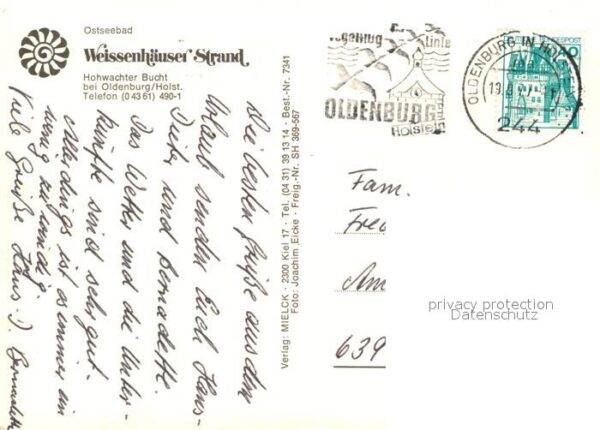 Ostseebad
Weissenhäuser Strand
Hohwachter Bucht
bei Oldenburg/Holst.
Telefon (0 43 61) 490-1
Die besten Grüße aus dem
Urlaub senden Euch Hans-
Dieter und Bernadette.
Das Wetter und die Unter-
künfte sind sehr gut.
Allerdings ist es immer ein
wenig zu windig.
Viele Grüße Hans-D. Bernadette
Verlag: MIELCK · 2300 Kiel 17 · Tel. (04 31) 39 13 14 · Best.-Nr. 7341
Foto: Joachim Eicke · Freig.-Nr. SH 369-567
Vogelflug Linie
OLDENBURG
Holstein
OLDENBURG IN HOLST
19.
244
Fam.
Am
639
privacy protection
Datenschutz